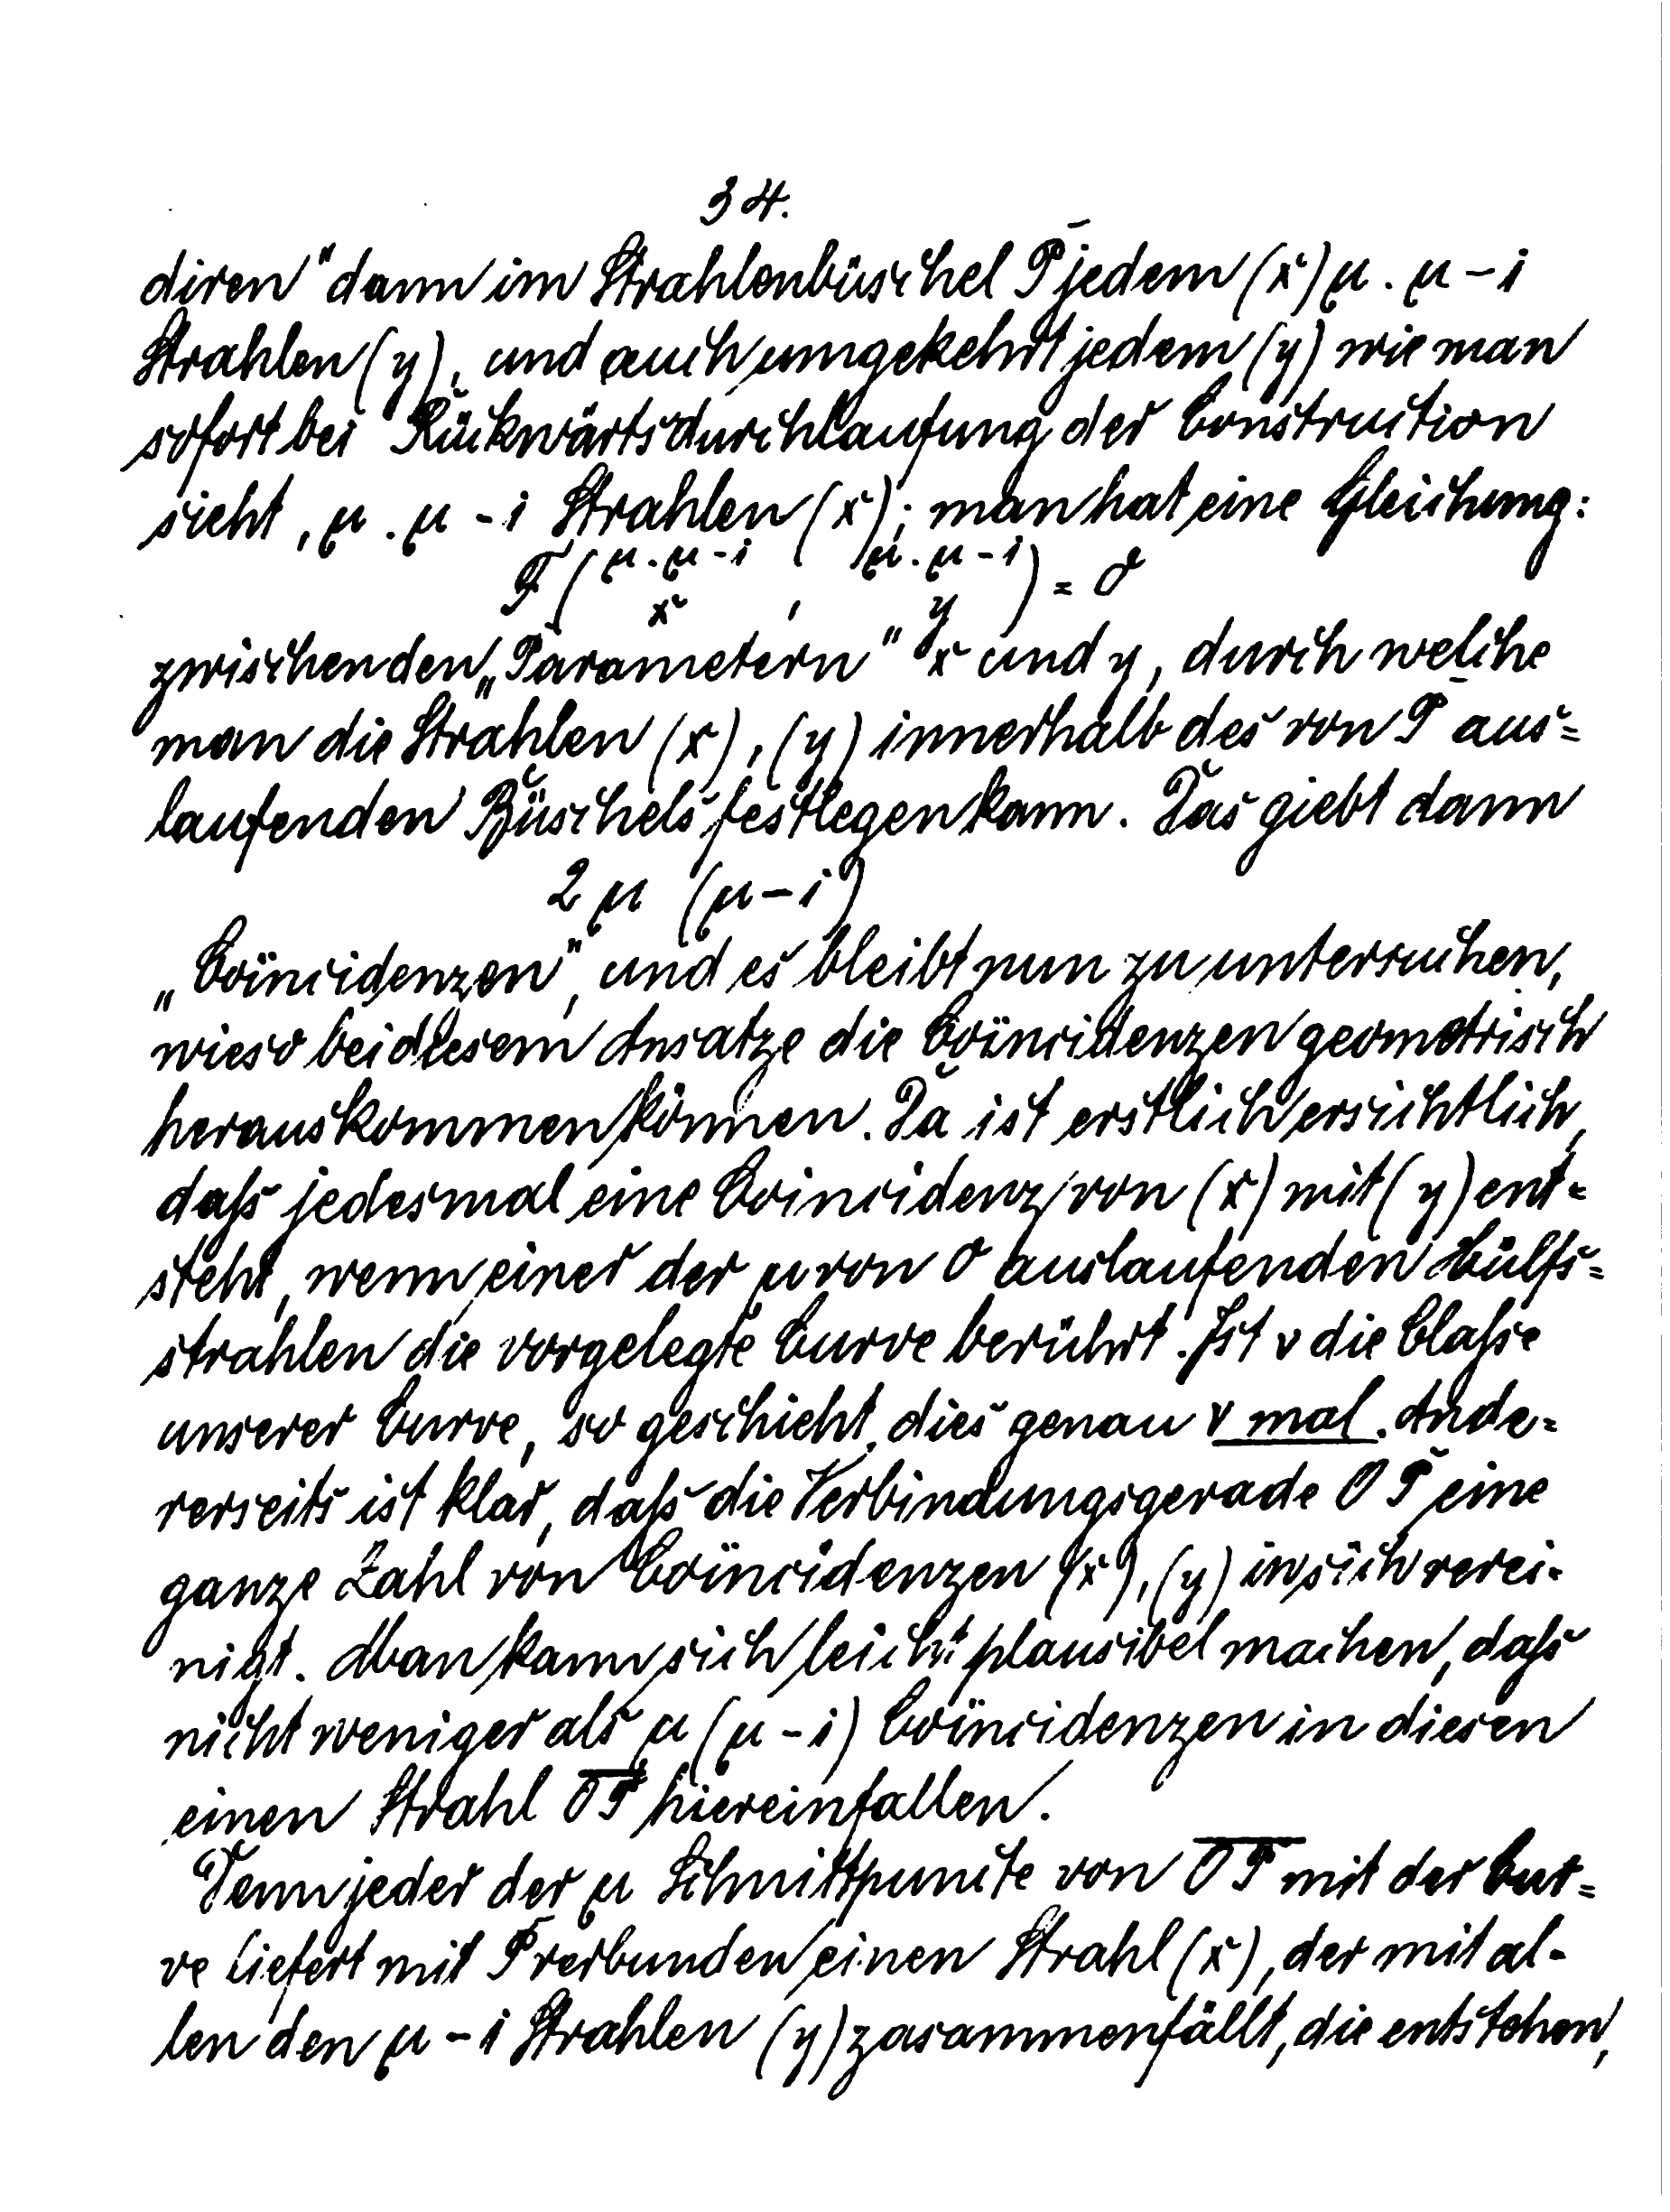 34.
diren" dann im Strahlenbüschel P jedem (x) μ . μ - 1
Strahlen (y), und auch umgekehrt jedem (y) wie man
sofort bei Rückwärtsdurchlaufung der Construction
sieht, μ . μ - 1 Strahlen (x); man hat eine Gleichung:
F ( x^{μ . μ - 1} , y^{μ . μ - 1} ) = 0
zwischen den „Parametern" x und y, durch welche
man die Strahlen (x), (y) innerhalb des von P aus=
laufenden Büschels festlegen kann. Das giebt dann
2 μ (μ - 1)
„Coïncidenzen", und es bleibt nun zu untersuchen,
wieso bei diesem Ansatze die Coïncidenzen geometrisch
herauskommen können. Da ist erstlich ersichtlich,
daß jedesmal eine Coincidenz von (x) mit (y) ent=
steht, wenn einer der μ von O auslaufenden Hülfs=
strahlen die vorgelegte Curve berührt. Ist ν die Claße
unserer Curve, so geschieht dies genau ν mal. Ande=
rerseits ist klar, daß die Verbindungsgerade O P eine
ganze Zahl von Coïncidenzen (x), (y) in sich verei-
nigt. Man kann sich leicht plausibel machen, daß
nicht weniger als μ (μ - 1) Coïncidenzen in diesen
einen Strahl O̅P̅ hiereinfallen.
Denn jeder der μ Schnittpuncte von O̅P̅ mit der Cur=
ve liefert mit P verbunden einen Strahl (x), der mit al-
len den μ - 1 Strahlen (y) zasammenfällt, die entstehen,